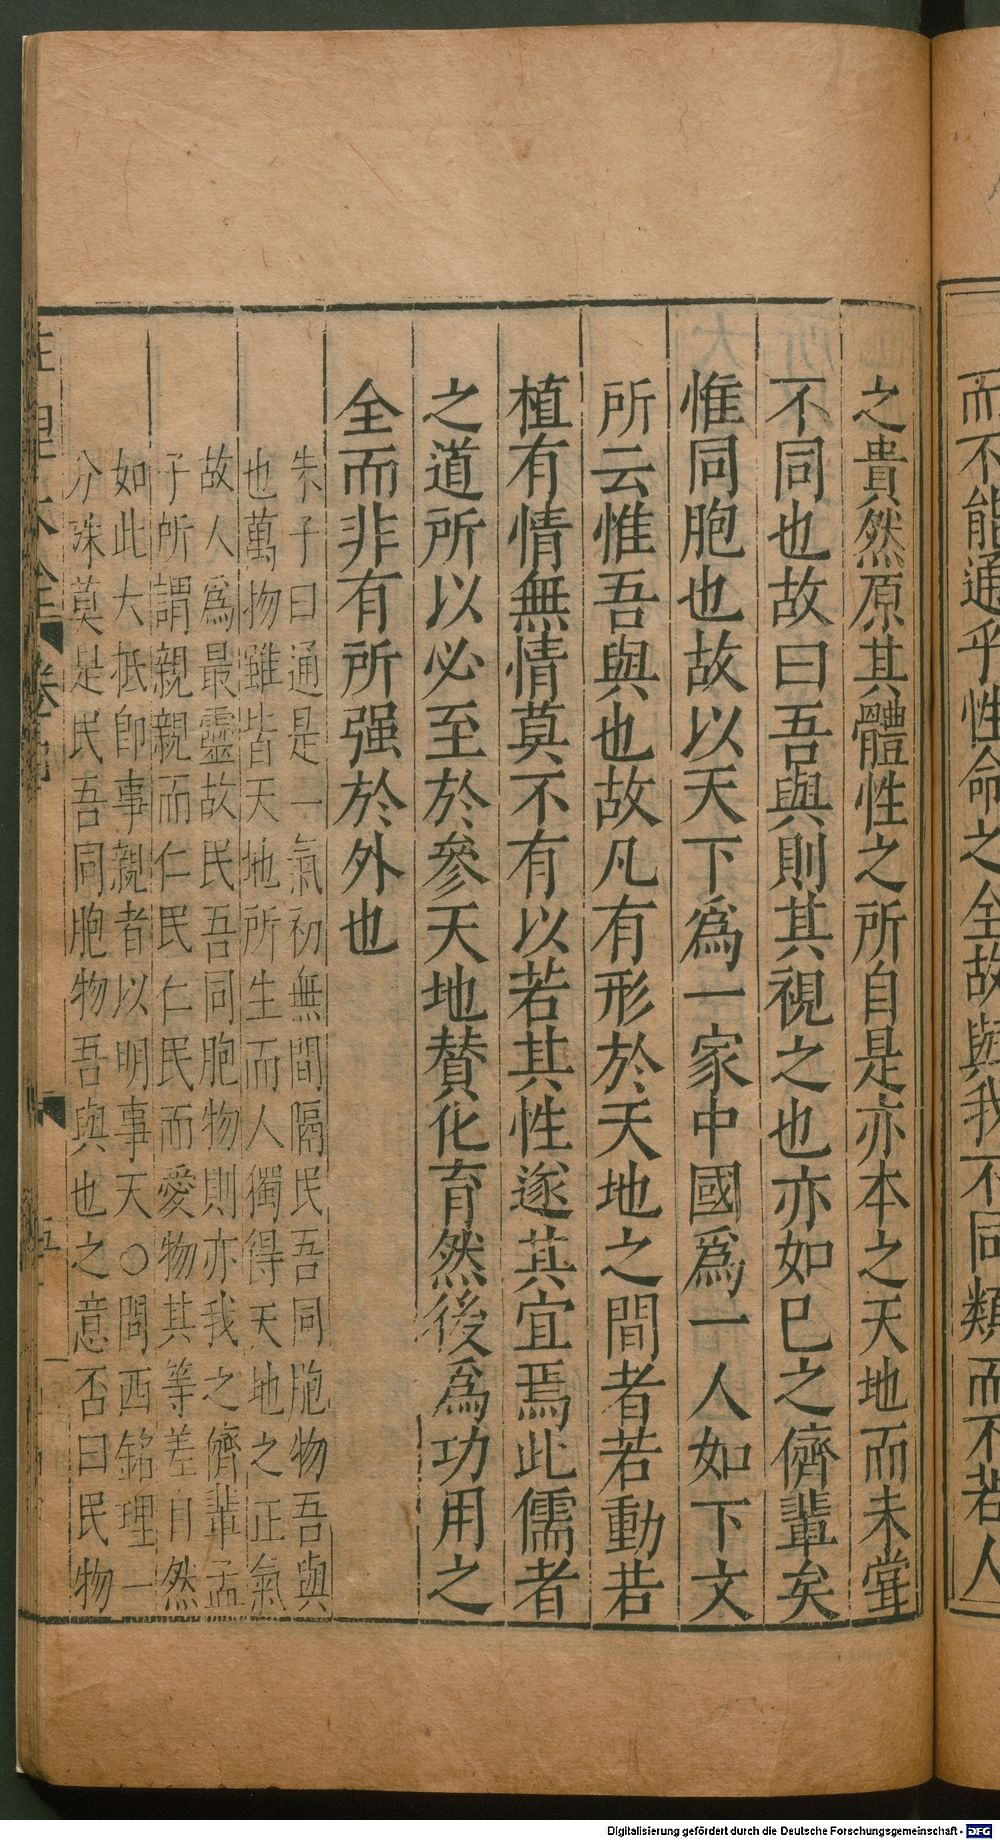 而不能通乎性命之全故與我不同類而不若人
之貴然原其體性之所自是亦本之天地而未甞
不同也故曰吾與則其視之也亦如已之儕輩矣
惟同胞也故以天下爲一家中國爲一人如下文
所云惟吾與也故凡有形於天地之間者若動若
植有情無情莫不有以若其性遂其宜焉此儒者
之道所以必至於參天地賛化育然後爲功用之
全而非有所强於外也
朱子曰通是一氣初無間隔民吾同胞物吾與
也萬物雖皆天地所生而人獨得天地之正氣
故人爲最靈故民吾同胞物則亦我之儕輩孟
子所謂親親而仁民仁民而愛物其等差自然
如此大抵卽事親者以明事天○問西銘理一
分殊莫是民吾同胞物吾與也之意否曰民物
性理大全 卷之四 五
Digitalisierung gefördert durch die Deutsche Forschungsgemeinschaft - DFG